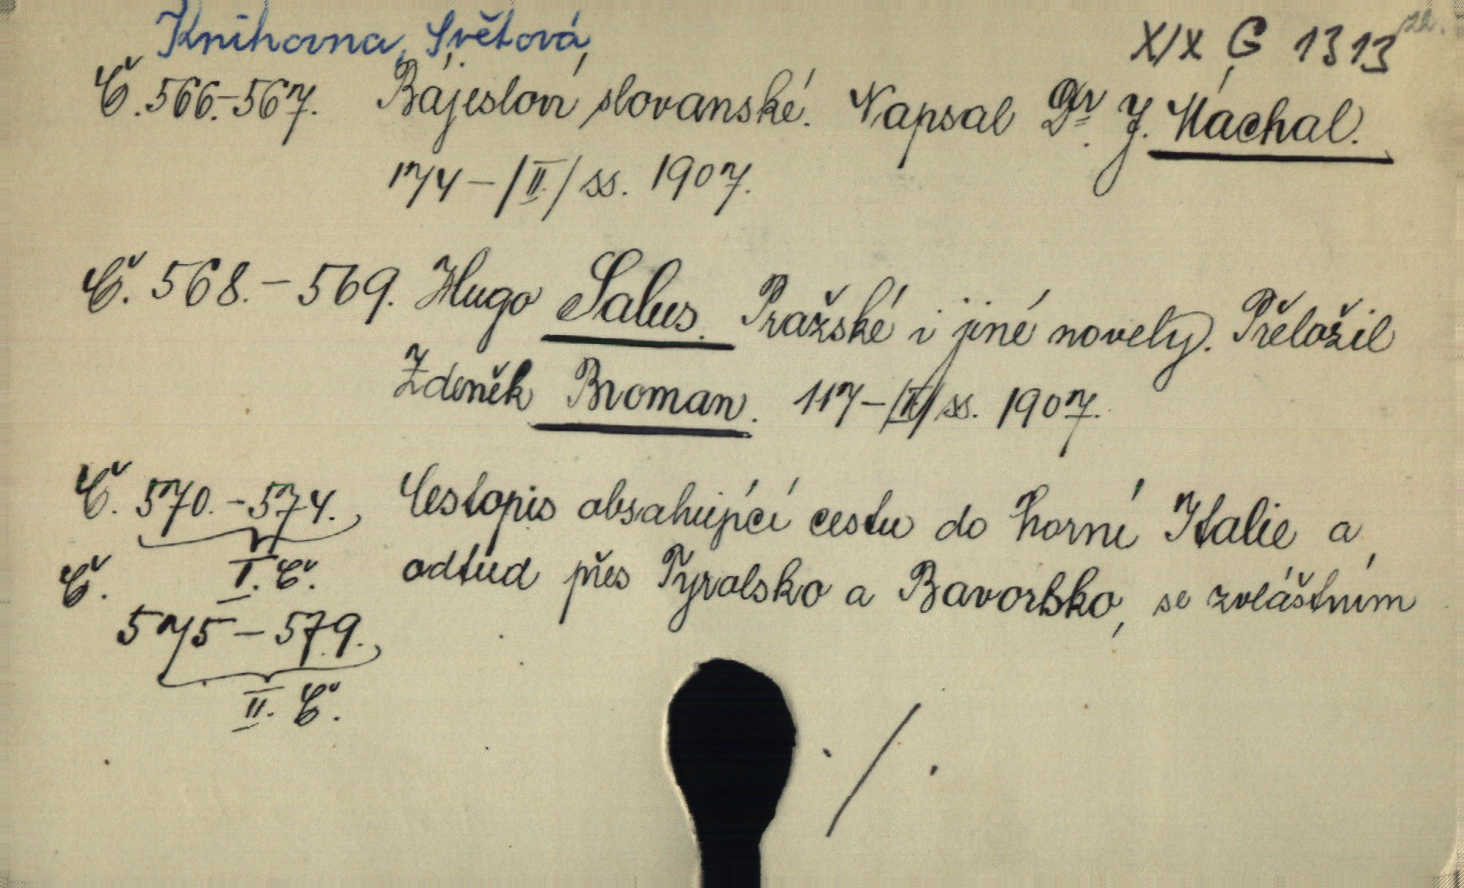 Knihovna, Světová XIX G 1313
Č. 566.-567. Bájesloví slovanské. Napsal Dr. J. Máchal.
174-/II./ ss. 1907.
Č. 568.-569. Hugo Salus. Pražské i jiné novely. Přeložil
Zdeněk Broman. 117-/II/ ss. 1907.
Č. 570.-574. Cestopis obsahující cestu do horní Italie a
I. Č. odtud přes Tyrolsko a Bavorsko, se zvláštním
Č.
575-579.
II. Č.
./.